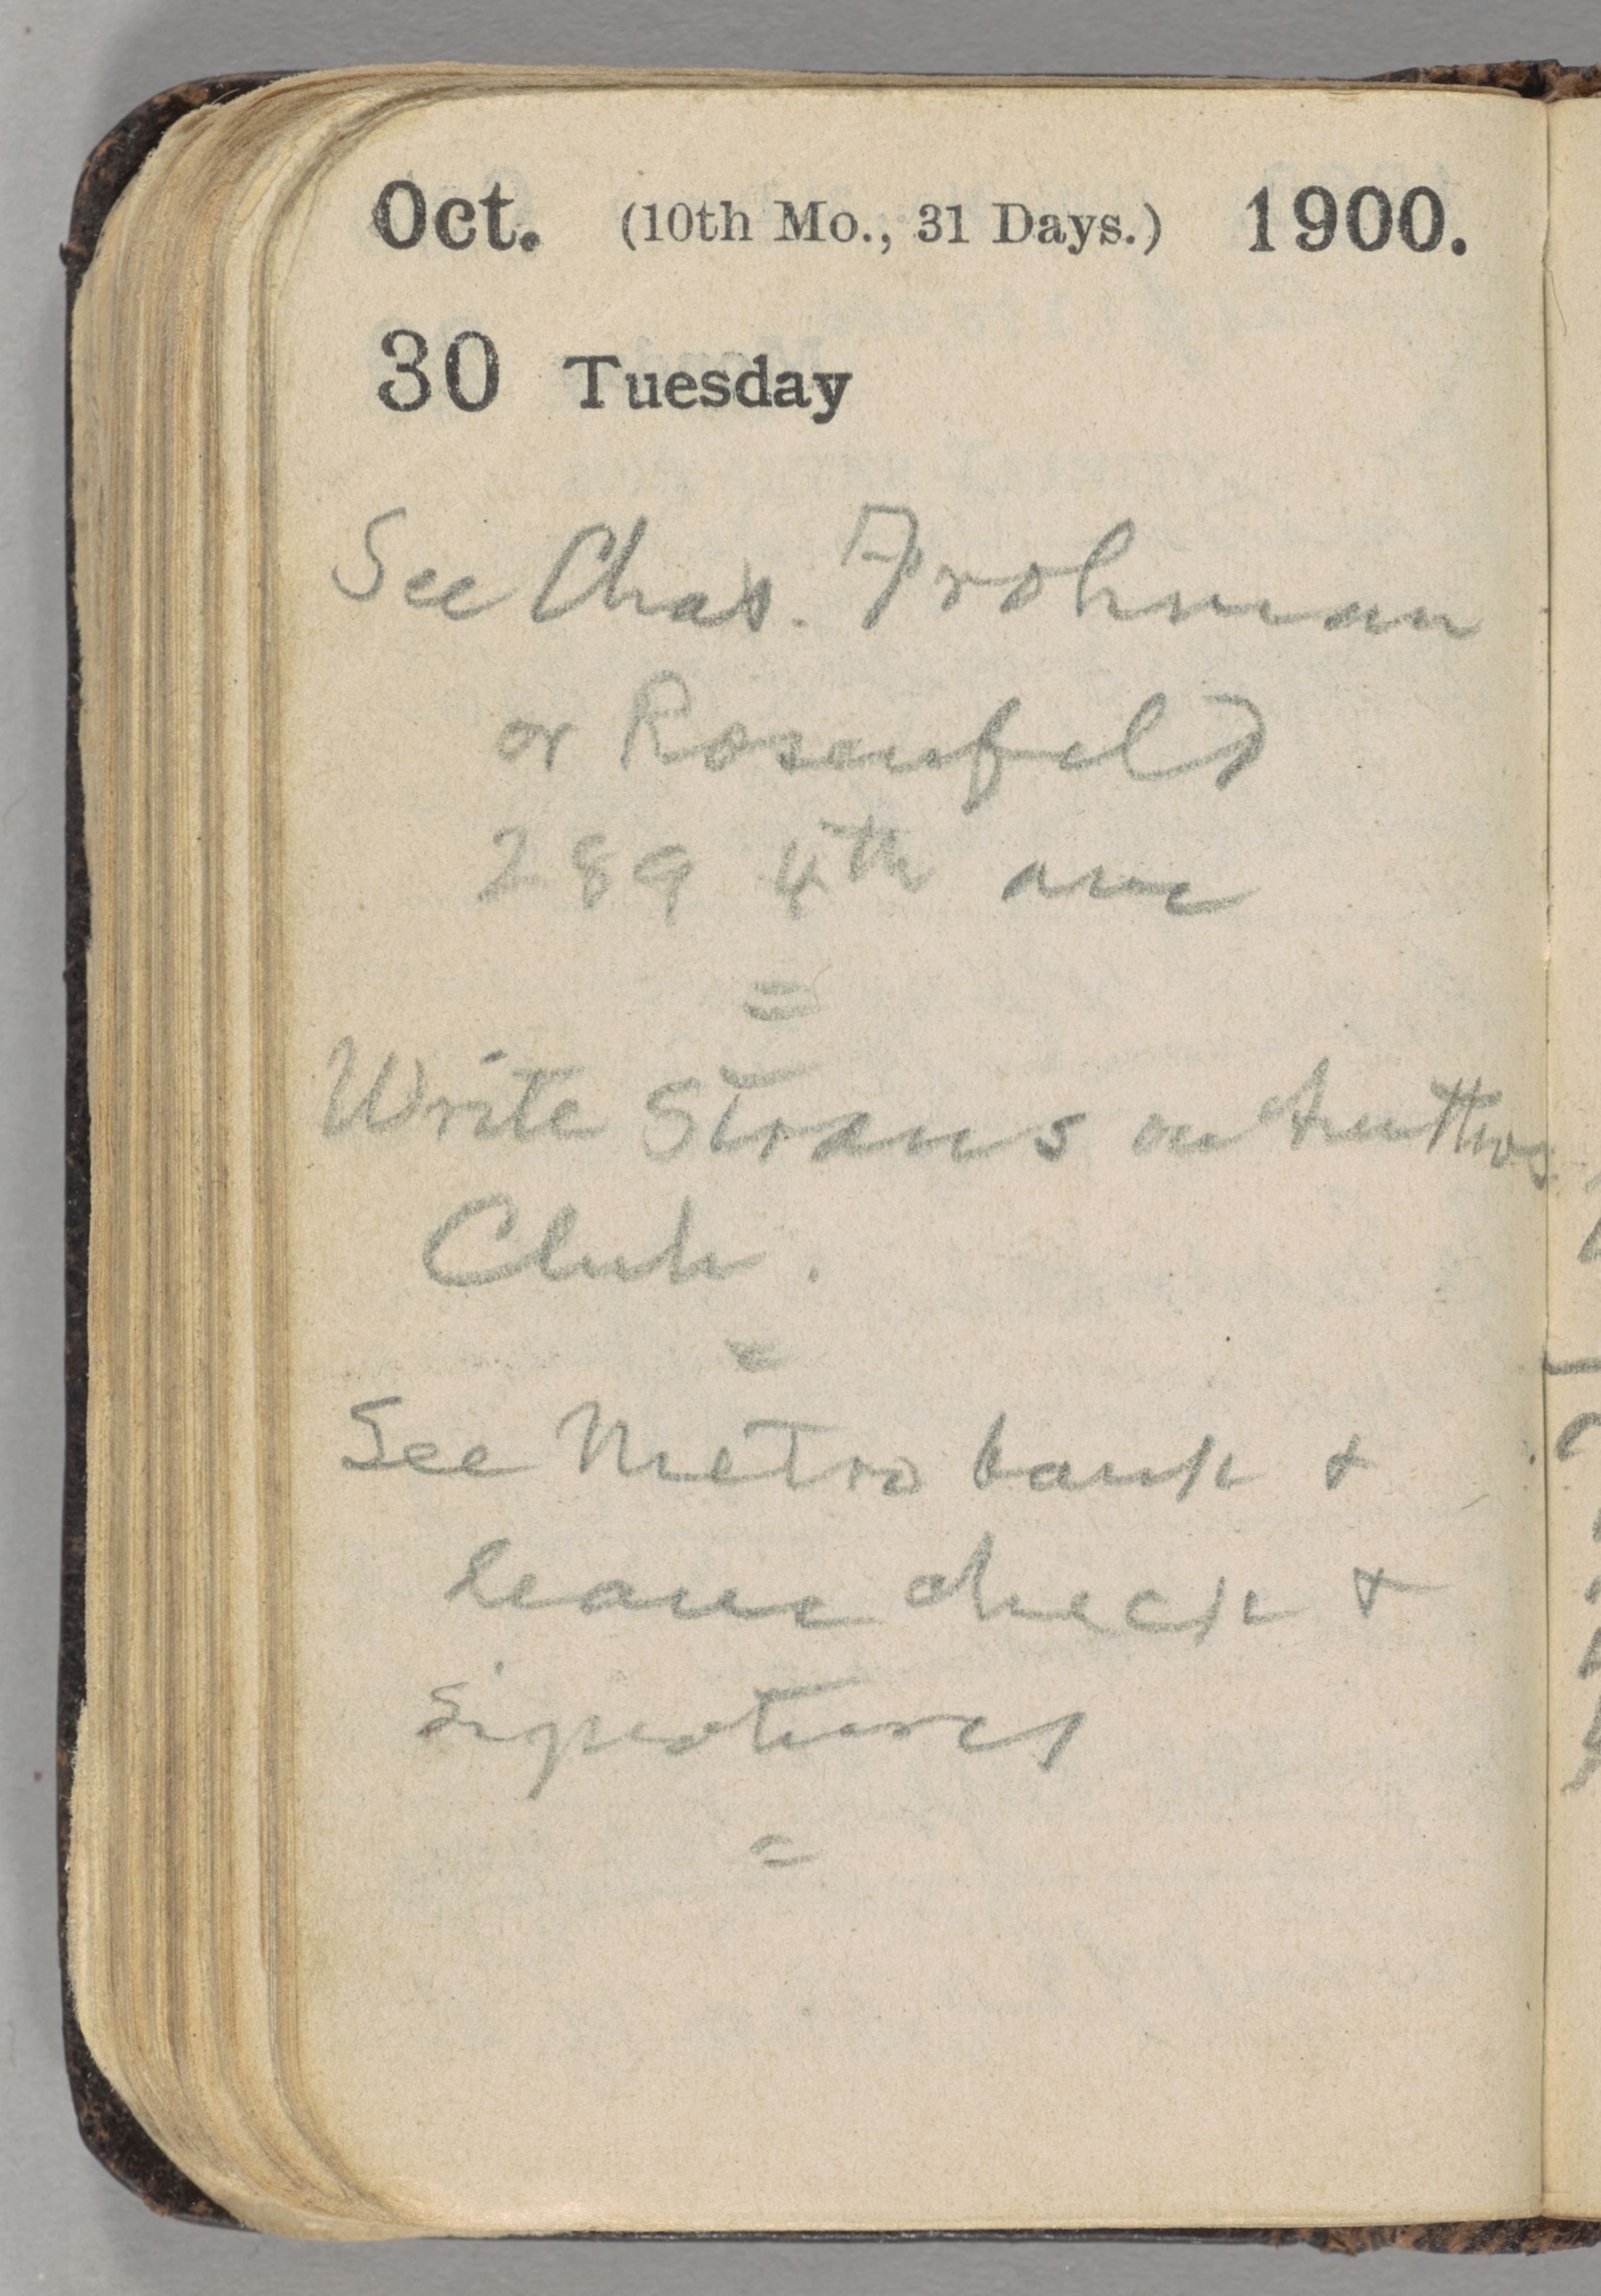 Oct. (10th Mo., 31 Days.) 1900.
30 Tuesday
See Chas. Frohman
or Rosenfeld
289 4th ave
=
Write Straus on Authors
Club.
=
See Metro bank +
leave check +
signatures
=